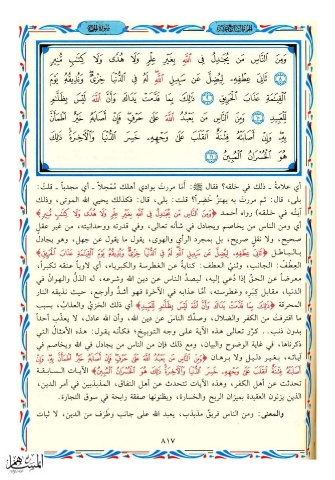 وَمِنَ النَّاسِ مَن يُجَٰدِلُ فِي اللَّهِ بِغَيْرِ عِلْمٍ وَلَا هُدًى وَلَا كِتَٰبٍ مُّنِيرٍ
﴿٨﴾ ثَانِيَ عِطْفِهِۦ لِيُضِلَّ عَن سَبِيلِ اللَّهِ لَهُۥ فِي الدُّنْيَا خِزْيٌ وَنُذِيقُهُۥ يَوْمَ
الْقِيَٰمَةِ عَذَابَ الْحَرِيقِ ﴿٩﴾ ذَٰلِكَ بِمَا قَدَّمَتْ يَدَاكَ وَأَنَّ اللَّهَ لَيْسَ بِظَلَّٰمٍ
لِّلْعَبِيدِ ﴿١٠﴾ وَمِنَ النَّاسِ مَن يَعْبُدُ اللَّهَ عَلَىٰ حَرْفٍ فَإِنْ أَصَابَهُۥ خَيْرٌ اطْمَأَنَّ
بِهِۦ وَإِنْ أَصَابَتْهُ فِتْنَةٌ انقَلَبَ عَلَىٰ وَجْهِهِۦ خَسِرَ الدُّنْيَا وَالْآخِرَةَ ذَٰلِكَ
هُوَ الْخُسْرَانُ الْمُبِينُ ﴿١١﴾
أي علامةُ - ذلك في خلقه؟ فقال ﷺ: أمَا مررتَ بوادي أهلك مُمْحِلاً - أي مجدباً - قلتُ:
بلى، قال: ثم مررتَ به يهتزُّ خَضِراً؟ قلت: بلى، قال: فكذلك يحيي الله الموتى، وذلك
آيتُه في خلقه» رواه أحمد ﴿وَمِنَ النَّاسِ مَن يُجَٰدِلُ فِي اللَّهِ بِغَيْرِ عِلْمٍ وَلَا هُدًى وَلَا كِتَٰبٍ مُّنِيرٍ﴾
أي ومن الناس من يخاصم ويجادل في شأنه تعالى، وفي قدرته ووحدانيته، من غير عقلٍ
صحيح، ولا نقلٍ صريح، بل بمجرد الرأي والهوى، يقول ما يقول عن جهل، وهو يجادل
بالباطل ﴿ثَانِيَ عِطْفِهِۦ لِيُضِلَّ عَن سَبِيلِ اللَّهِ لَهُۥ فِي الدُّنْيَا خِزْيٌ وَنُذِيقُهُۥ يَوْمَ الْقِيَٰمَةِ عَذَابَ الْحَرِيقِ﴾
العِطْفُ: الجانب، وثَنْيُ العِطف: كنايةٌ عن الغطرسة والكبرياء، أي لاوياً عنقه تكبراً،
معرضاً عن الحقِّ إذا دُعي إليه، ليصدَّ الناسَ عن دين الله وشرعه، له الذلُّ والهوانُ في
الدنيا، مقابل كِبْره وغطرسته، أمَّا عذابه في الآخرة فهو أشدُّ وأوجع، حيث نذيقه النار
المحرقة ﴿ذَٰلِكَ بِمَا قَدَّمَتْ يَدَاكَ وَأَنَّ اللَّهَ لَيْسَ بِظَلَّٰمٍ لِّلْعَبِيدِ﴾ أي ذلك الخزيُ والعذابُ، بسبب
ما اقترفتَ من الكفر والضلال، وصدِّك الناسَ عن دين الله، وأن الله عادل، لا يعذب أحداً
بدون ذنب.. كرَّر تعالى هذه الآية على وجه التوبيخ؛ فكأنه يقول: هذه الأمثالُ التي
ذكرناها، في غاية الوضوح والبيان، ومع ذلك فإن من الناس من يجادل في الله ويخاصم في
آياته، بغير دليل ولا برهان ﴿وَمِنَ النَّاسِ مَن يَعْبُدُ اللَّهَ عَلَىٰ حَرْفٍ فَإِنْ أَصَابَهُۥ خَيْرٌ اطْمَأَنَّ بِهِۦ وَإِنْ
أَصَابَتْهُ فِتْنَةٌ انقَلَبَ عَلَىٰ وَجْهِهِۦ خَسِرَ الدُّنْيَا وَالْآخِرَةَ ذَٰلِكَ هُوَ الْخُسْرَانُ الْمُبِينُ﴾ الآيات السابقة
تحدثت عن أهل الكفر، وهذه الآيات تتحدث عن أهل النفاق، المذبذبين في أمر الدين،
الذين يزنون العقيدة بميزان الربح والخسارة، ويظنونها صفقة رابحة في سوق التجارة.
والمعنى: ومن الناس فريقٌ مذبذب، يعبد الله على جانبٍ وطرَفٍ من الدين، لا ثبات
٨١٧